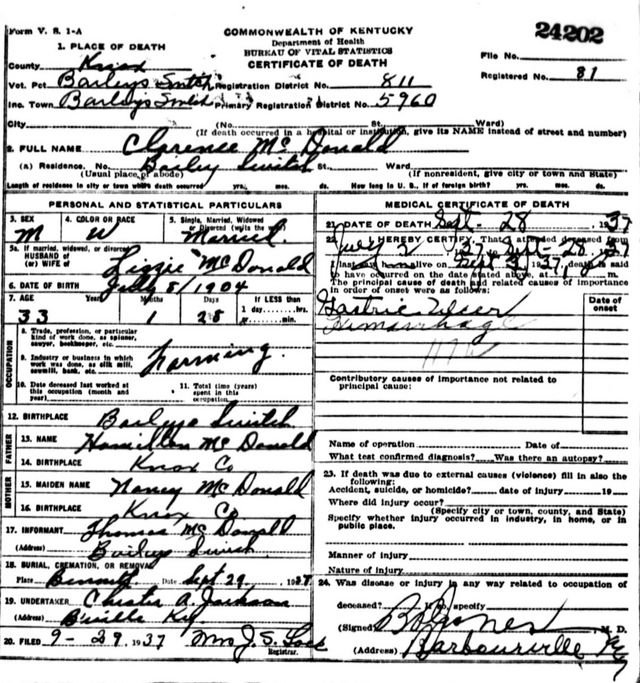 Form V. S. 1-A
COMMONWEALTH OF KENTUCKY
Department of Health
BUREAU OF VITAL STATISTICS
CERTIFICATE OF DEATH
24202
File No.
Registered No. 81
1. PLACE OF DEATH
County Knox
Vot. Pct Baileys Switch Registration District No. 811
Inc. Town Baileys Switch Primary Registration District No. 5960
City (No. St. Ward)
(If death occurred in a hospital or institution, give its NAME instead of street and number)
2. FULL NAME Clarence Mc Donald
(a) Residence. No. Bailey Switch St. Ward
(Usual place of abode) (If nonresident, give city or town and State)
Length of residence in city or town where death occurred yrs. mos. ds. How long in U. S., if of foreign birth? yrs. mos. ds.
PERSONAL AND STATISTICAL PARTICULARS
3. SEX M
4. COLOR OR RACE W
5. Single, Married, Widowed or Divorced (write the word) Married
5a. If married, widowed, or divorced
HUSBAND of
(or) WIFE of Lizzie McDonald
6. DATE OF BIRTH July 8/1904
7. AGE Years Months Days If LESS than
33 1 28 1 day hrs.
or min.
OCCUPATION
8. Trade, profession, or particular
kind of work done, as spinner,
sawyer, bookkeeper, etc.
9. Industry or business in which
work was done, as silk mill,
sawmill, bank, etc.
Farming.
10. Date deceased last worked at
this occupation (month and
year)
11. Total time (years)
spent in this
occupation
12. BIRTHPLACE Baileys Switch
FATHER
13. NAME Hamilton McDonald
14. BIRTHPLACE Knox Co
MOTHER
15. MAIDEN NAME Nancy McDonald
16. BIRTHPLACE Knox Co
17. INFORMANT Thomas McDonald
(Address) Baileys Switch
18. BURIAL, CREMATION, OR REMOVAL
Place Bennett Date Sept 29, 1937
19. UNDERTAKER Chester A. Jackson
B'ville Ky.
20. FILED 9-29 1937 Mrs J. S.
Registrar.
MEDICAL CERTIFICATE OF DEATH
21. DATE OF DEATH Sept 28, 1937
22. I HEREBY CERTIFY, That I attended deceased from
July 2 37 Sept 28, 37
I last saw him alive on Sept 37, death is said
to have occurred on the date stated above, at m.
The principal cause of death and related causes of importance
in order of onset were as follows:
Date of
onset
Gastric Ulcer
Hemorrhage
Contributory causes of importance not related to
principal cause:
Name of operation Date of
What test confirmed diagnosis? Was there an autopsy?
23. If death was due to external causes (violence) fill in also the
following:
Accident, suicide, or homicide? date of injury 19
Where did injury occur?
(Specify city or town, county, and State)
Specify whether injury occurred in industry, in home, or in
public place.
Manner of injury
Nature of injury
24. Was disease or injury in any way related to occupation of
deceased? If so, specify
(Signed) Jones M. D.
(Address) Barbourville Ky